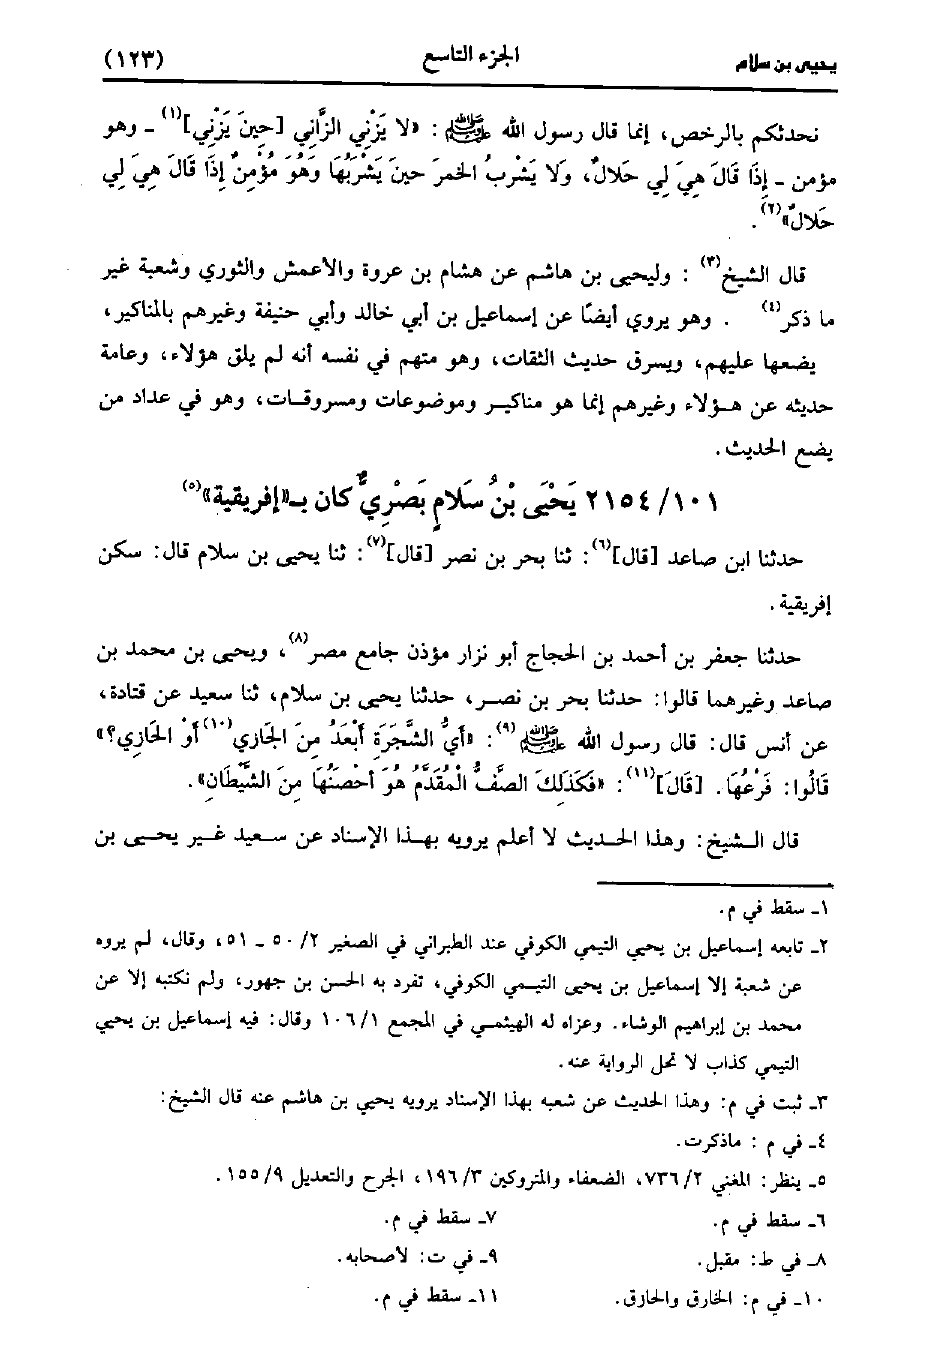 يحيى بن سلام الجزء التاسع (١٢٣)
نحدثكم بالرخص، إنما قال رسول الله ﷺ: «لا يَزْنِي الزَّانِي [حِينَ يَزْنِي](١) ـ وهو
مؤمن ـ إِذَا قَالَ هِيَ لِي حَلالٌ، وَلَا يَشْرِبُ الخمرَ حينَ يَشْرَبُهَا وَهُوَ مُؤْمِنٌ إِذَا قَالَ هِيَ لِي
حَلالٌ»(٢).
قال الشيخ(٣) : وليحيى بن هاشم عن هشام بن عروة والأعمش والثوري وشعبة غير
ما ذكر(٤) . وهو يروي أيضًا عن إسماعيل بن أبي خالد وأبي حنيفة وغيرهم بالمناكير،
يضعها عليهم، ويسرق حديث الثقات، وهو متهم في نفسه أنه لم يلق هؤلاء، وعامة
حديثه عن هـؤلاء وغيرهم إنما هو مناكير وموضوعات ومسروقات، وهو في عداد من
يضع الحديث.
٢١٥٤/١٠١ يَحْيَى بْنُ سَلَامٍ بَصْرِيٌّ كان بـ«إفريقية»(٥)
حدثنا ابن صاعد [قال](٦): ثنا بحر بن نصر [قال](٧): ثنا يحيى بن سلام قال: سكن
إفريقية.
حدثنا جعفر بن أحمد بن الحجاج أبو نزار مؤذن جامع مصر(٨)، ويحيى بن محمد بن
صاعد وغيرهما قالوا: حدثنا بحر بن نصر، حدثنا يحيى بن سلام، ثنا سعيد عن قتادة،
عن أنس قال: قال رسول الله ﷺ(٩): «أَيُّ الشَّجَرَةِ أَبْعَدُ مِنَ الجَازي(١٠) أَوْ الخَازِي؟»
قَالُوا: فَرْعُهَا. [قَالَ](١١): «فَكَذَلِكَ الصَّفُّ الْمُقَدَّمُ هُوَ أَحْصَنُهَا مِنَ الشَّيْطَانِ».
قال الشيخ: وهذا الحديث لا أعلم يرويه بهذا الإسناد عن سعيد غير يحيى بن
١ـ سقط في م.
٢ـ تابعه إسماعيل بن يحيى التيمي الكوفي عند الطبراني في الصغير ٢/ ٥٠ ـ ٥١، وقال، لم يروه
عن شعبة إلا إسماعيل بن يحيى التيمي الكوفي، تفرد به الحسن بن جهور، ولم نكتبه إلا عن
محمد بن إبراهيم الوشاء. وعزاه له الهيثمي في المجمع ١/ ١٠٦ وقال: فيه إسماعيل بن يحيي
التيمي كذاب لا تحل الرواية عنه.
٣ـ ثبت في م: وهذا الحديث عن شعبه بهذا الإسناد يرويه يحيي بن هاشم عنه قال الشيخ:
٤ـ في م : ماذكرت.
٥ـ ينظر: المغني ٢/ ٧٣٦، الضعفاء والمتروكين ٣/ ١٩٦، الجرح والتعديل ٩/ ١٥٥.
٦ـ سقط في م. ٧ـ سقط في م.
٨ـ في ط: مقبل. ٩ـ في ت: لأصحابه.
١٠ـ في م: الخارق والحارق. ١١ـ سقط في م.